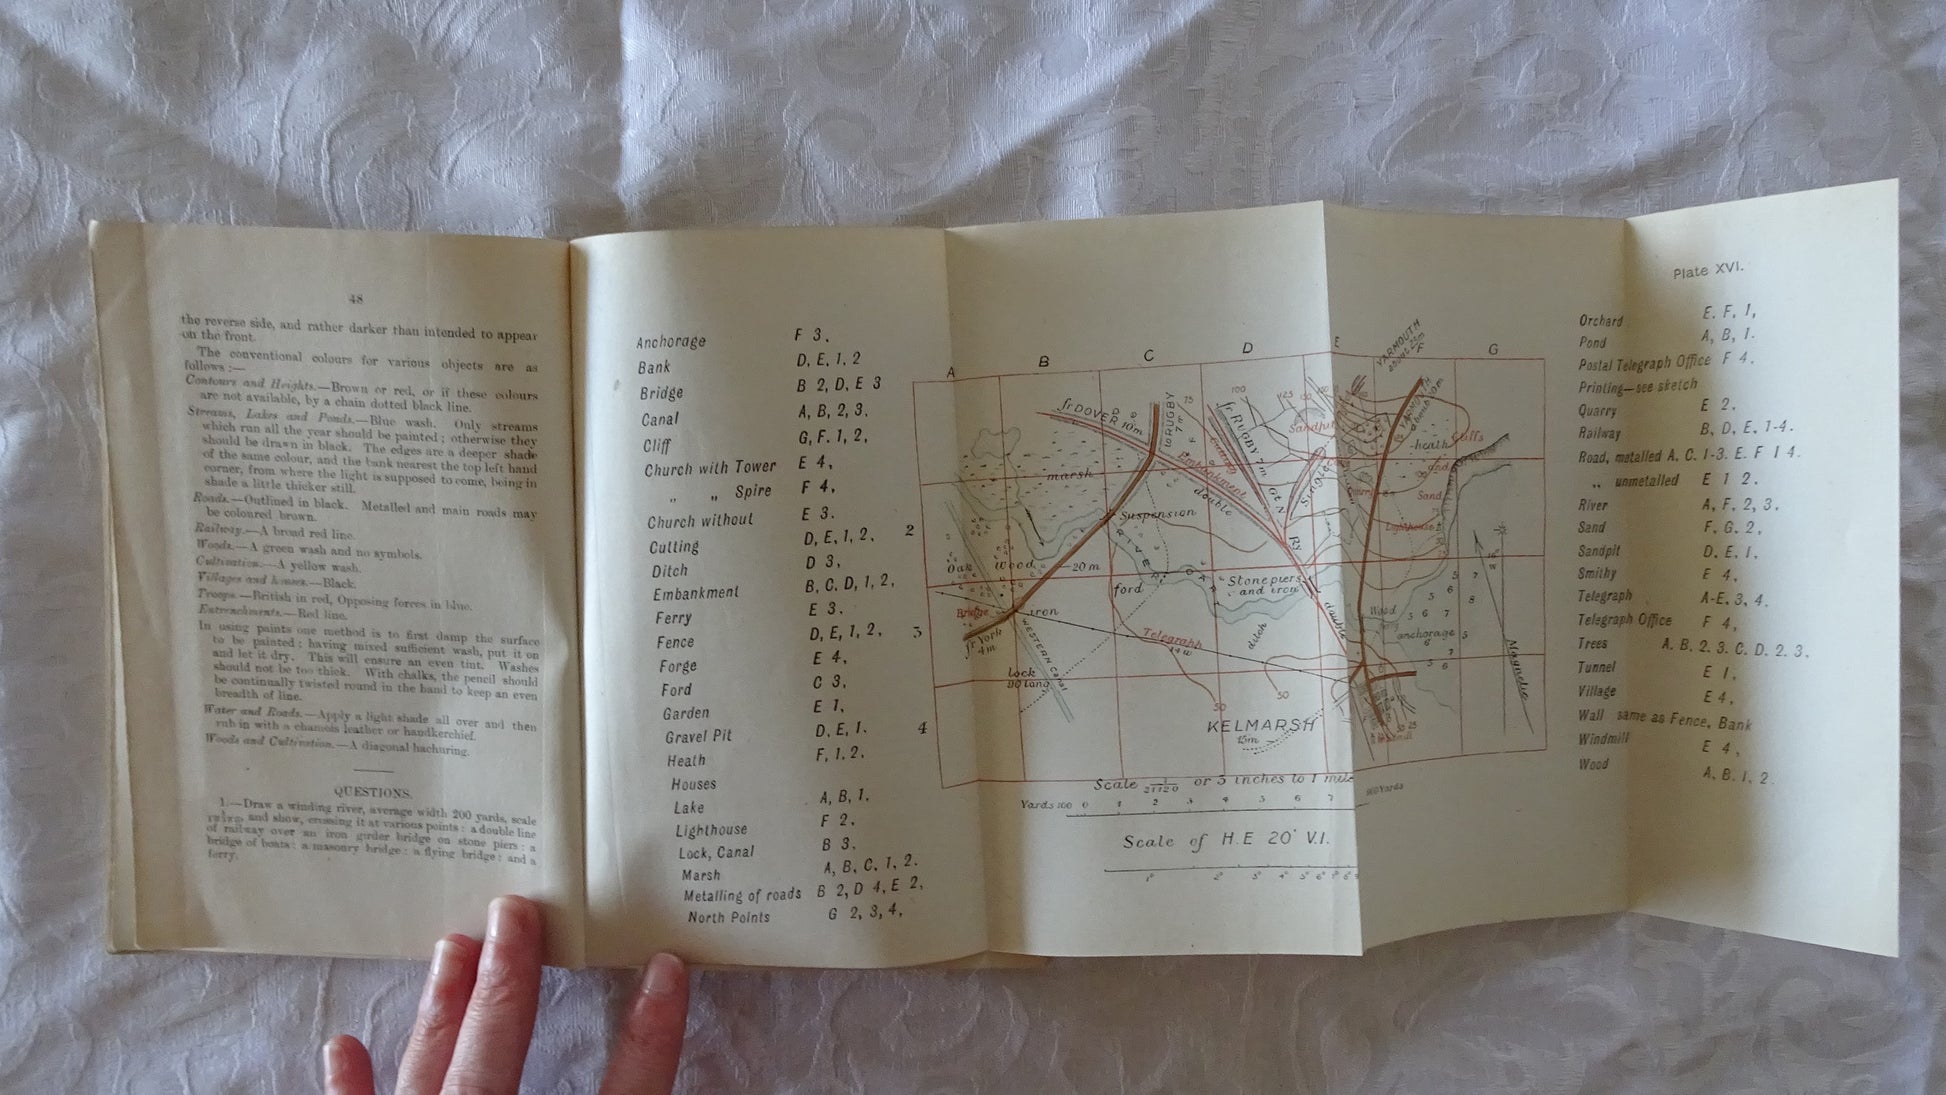 48
the reverse side, and rather darker than intended to appear
on the front.
The conventional colours for various objects are as
follows :—
Contours and Heights.—Brown or red, or if these colours
are not available, by a chain dotted black line.
Streams, Lakes and Ponds.—Blue wash. Only streams
which run all the year should be painted; otherwise they
should be drawn in black. The edges are a deeper shade
of the same colour, and the bank nearest the top left hand
corner, from where the light is supposed to come, being in
shade a little thicker still.
Roads.—Outlined in black. Metalled and main roads may
be coloured brown.
Railway.—A broad red line.
Woods.—A green wash and no symbols.
Cultivation.—A yellow wash.
Villages and houses.—Black.
Troops.—British in red, Opposing forces in blue.
Entrenchments.—Red line.
In using paints one method is to first damp the surface
to be painted; having mixed sufficient wash, put it on
and let it dry. This will ensure an even tint. Washes
should not be too thick. With chalks, the pencil should
be continually twisted round in the hand to keep an even
breadth of line.
Water and Roads.—Apply a light shade all over and then
rub in with a chamois leather or handkerchief.
Woods and Cultivation.—A diagonal hachuring.
QUESTIONS.
1.—Draw a winding river, average width 200 yards, scale
and show, crossing it at various points: a double line
of railway over an iron girder bridge on stone piers: a
bridge of boats: a masonry bridge: a flying bridge: and a
ferry.
Anchorage F 3,
Bank D, E, 1, 2
Bridge B 2, D, E 3
Canal A, B, 2, 3,
Cliff G, F. 1, 2,
Church with Tower E 4,
„ „ Spire F 4,
Church without E 3.
Cutting D, E, 1, 2,
Ditch D 3,
Embankment B, C, D, 1, 2,
Ferry E 3.
Fence D, E, 1, 2,
Forge E 4,
Ford C 3,
Garden E 1,
Gravel Pit D, E, 1.
Heath F, 1. 2.
Houses
Lake A, B, 1.
Lighthouse F 2.
Lock, Canal B 3,
Marsh A, B, C, 1, 2.
Metalling of roads B 2, D 4, E 2,
North Points G 2, 3, 4,
A B C D E F G
2
3
4
YARMOUTH
fr DOVER 10m
to RUGBY
7 m
fr RUGBY 7m
75
100
125
Sandpit
heath
Cliffs
marsh
Embankment
double
Single
Sand
Lighthouse
Suspension
RIVER
Ry
Oak Wood
20 m
ford
Stone piers
and iron
Bridge
iron
fr York
4m
WESTERN CANAL
lock
90 long
Telegraph
14 w
ditch
double
Wood
anchorage
50
50
KELMARSH
15m
25
Magnetic
Scale 1/21120 or 3 inches to 1 mile
Yards 100 0 1 2 3 4 5 6 7 800 Yards
Scale of H.E 20' V.I.
Plate XVI.
Orchard E. F. 1,
Pond A, B, 1.
Postal Telegraph Office F 4.
Printing—see sketch
Quarry E 2.
Railway B, D, E, 1-4.
Road, metalled A, C. 1-3. E. F 1 4.
„ unmetalled E 1 2.
River A, F, 2, 3.
Sand F, G. 2,
Sandpit D. E. 1.
Smithy E 4,
Telegraph A-E, 3, 4.
Telegraph Office F 4,
Trees A. B. 2. 3. C. D. 2. 3.
Tunnel E 1,
Village E 4,
Wall same as Fence, Bank
Windmill E 4,
Wood A, B. 1, 2.